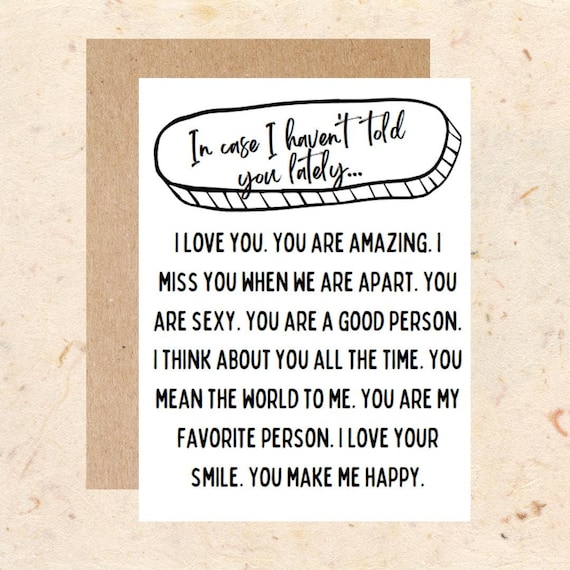 In case I haven't told
you lately...
I LOVE YOU. YOU ARE AMAZING. I
MISS YOU WHEN WE ARE APART. YOU
ARE SEXY. YOU ARE A GOOD PERSON.
I THINK ABOUT YOU ALL THE TIME. YOU
MEAN THE WORLD TO ME. YOU ARE MY
FAVORITE PERSON. I LOVE YOUR
SMILE. YOU MAKE ME HAPPY.